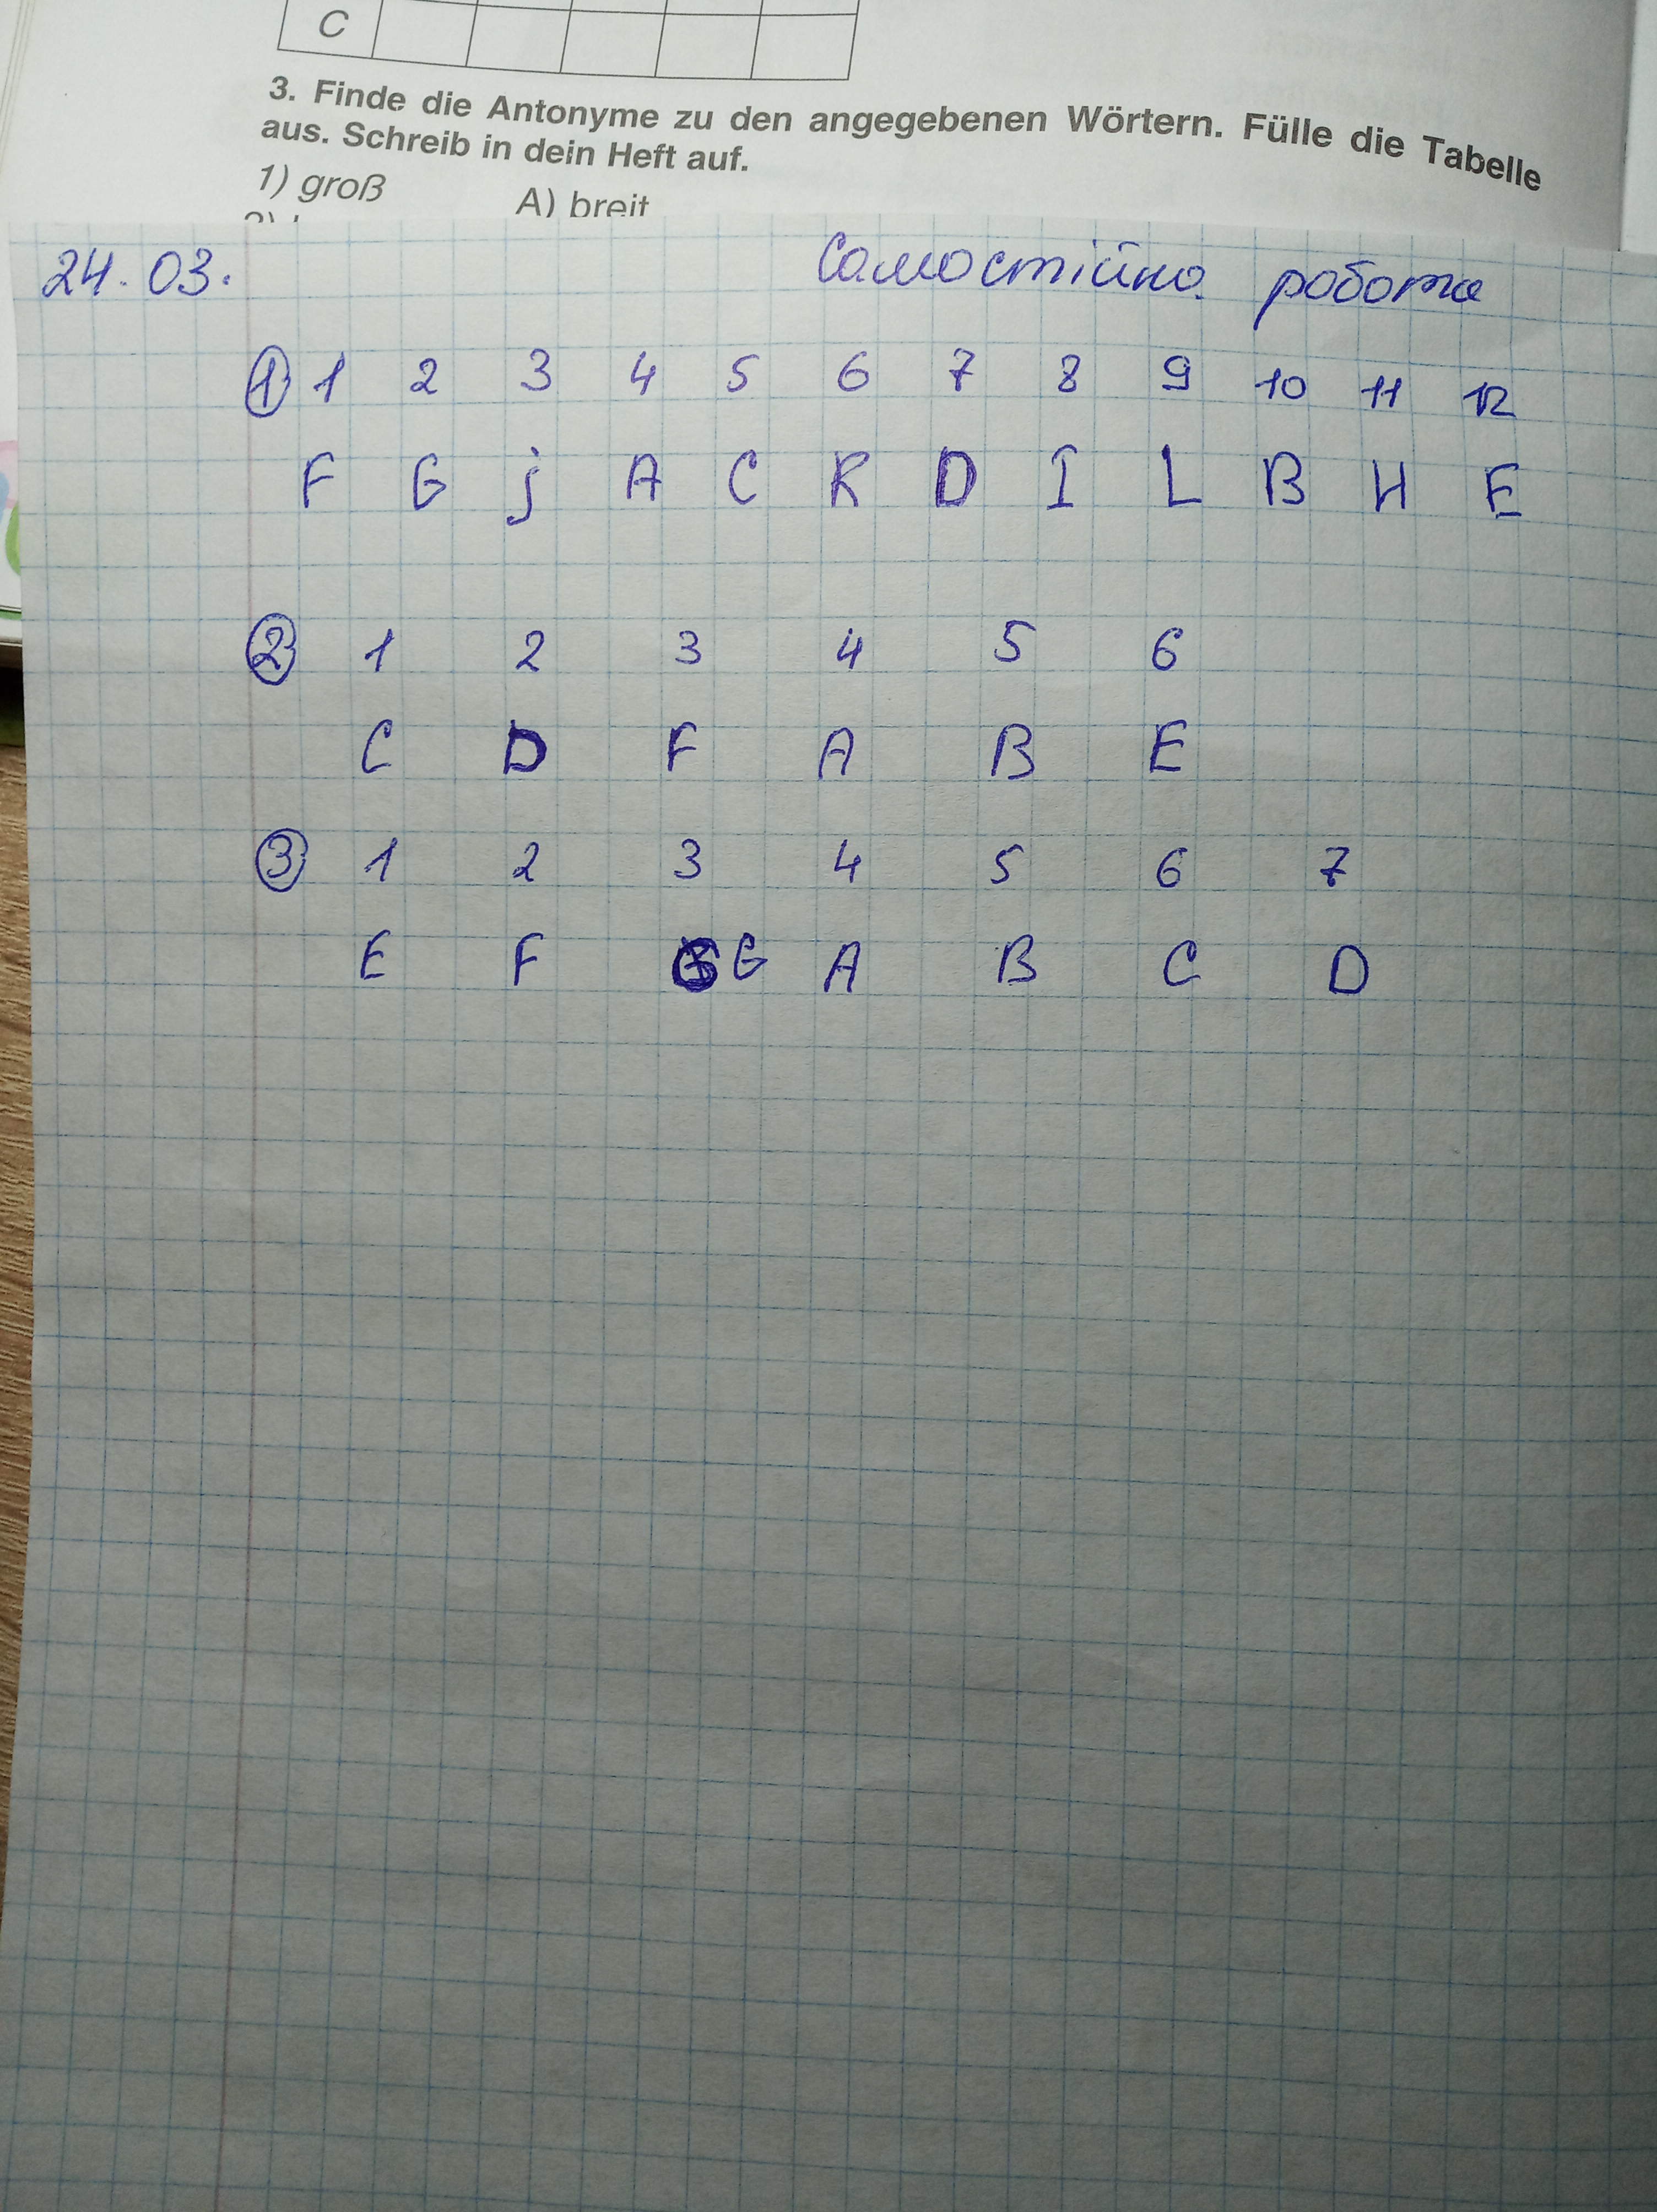 C
3. Finde die Antonyme zu den angegebenen Wörtern. Fülle die Tabelle
aus. Schreib in dein Heft auf.
1) groß A) breit
24.03. Самостійна робота
1 1 2 3 4 5 6 7 8 9 10 11 12
F G j A C K D I L B H E
2 1 2 3 4 5 6
C D F A B E
3 1 2 3 4 5 6 7
E F G A B C D